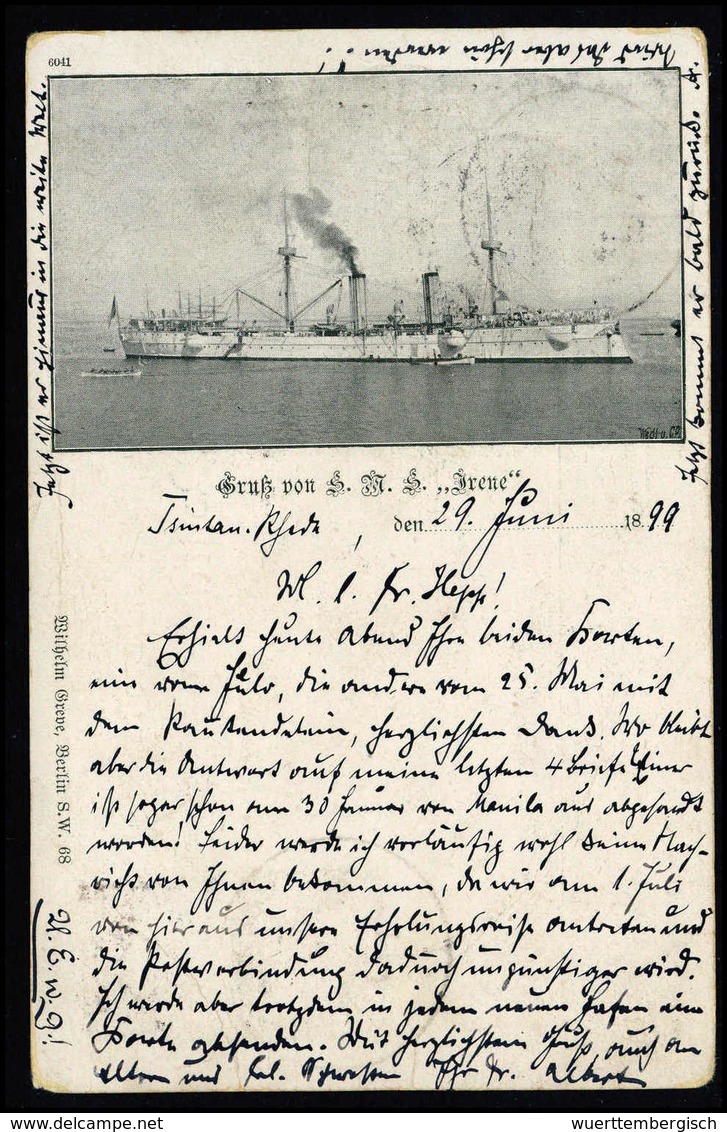 6041
wird das aber schön werden!
Jetzt ist er hinaus in die weite Welt.
Jetzt kommt er bald zurück. A.
Gruß von S. M. S. „Irene“
Tsintau-Rhede, den 29. Juni 1899
W. l. Fr. Hepp!
Erhielt heute Abend Ihre beiden Karten,
eine vom Julo, die andere vom 25. Mai mit
dem Rautendelein, herzlichsten Dank. Wo bleibt
aber die Antwort auf meine letzten 4 Briefe? Einer
ist sogar schon am 30 Januar von Manila aus abgesandt
worden! Leider werde ich vorläufig wohl keine Nach-
richt von Ihnen bekommen, da wir am 1. Juli
von hier aus unsere Erholungsreise antreten und
die Postverbindung dadurch ungünstiger wird.
Ich werde aber trotzdem in jedem neuen Hafen eine
Karte absenden. Mit herzlichstem Gruß, auch an
Eltern und Frl. Schwester Ihr Fr. Albert
Wilhelm Greve, Berlin S.W. 68
U. A. w. g.!
wuerttembergisch